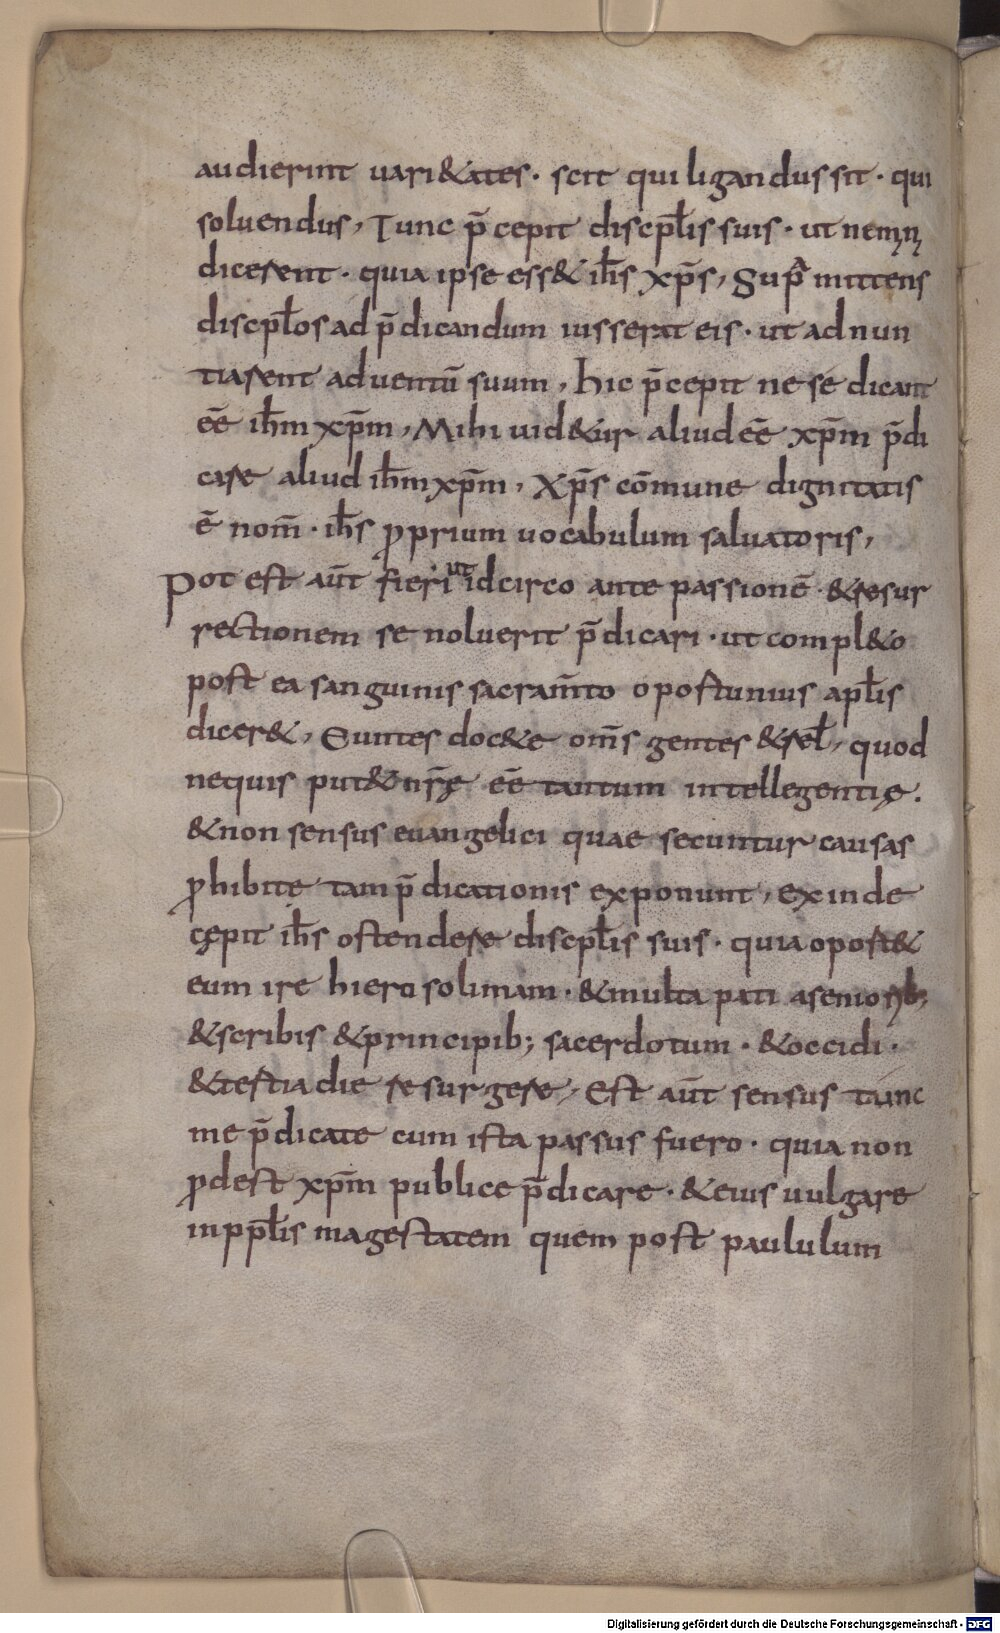 audierint uari&ates · scit qui ligandus sit · qui
soluendus, Tunc p̄cepit discpl̄is suis · ut nemini
dicerent · quia ipse ess& ih̄s xp̄s, Supra mittens
discpl̄os ad p̄dicandum iusserat eis · ut adnun
tiarent aduentū suum, hic p̄cepit ne se dicant
eē ih̄m xp̄m, Mihi uid&ur aliud eē xp̄m p̄di
care aliud ih̄m xp̄m, Xp̄s cōmune dignitatis
ē nom̄ · ih̄s ꝓprium uocabulum saluatoris,
Pot est aūt fieri ut idcirco ante passionē · &resur
rectionem se noluerit p̄dicari · ut compl&o
post ea sanguinis sacram̄to oportunius apl̄is
dicer&, Euntes doc&e om̄s gentes &rel̄, quod
nequis put& nr̄ę eē tantum intellegentię ·
&non sensus euangelici quae secuntur causas
ꝓhibite tam p̄dicationis exponunt, exinde
cępit ih̄s ostendere discpl̄is suis · quia oport&
eum ire hierosolimam · &multa pati asenioribꝫ
&scribis &principib; sacerdotum · &occidi ·
&tertia die resurgere, Est aūt sensus tunc
me p̄dicate cum ista passus fuero · quia non
ꝓdest xp̄m publice p̄dicare · &eius uulgare
inppl̄is magestatem quem post paululum
Digitalisierung gefördert durch die Deutsche Forschungsgemeinschaft - DFG